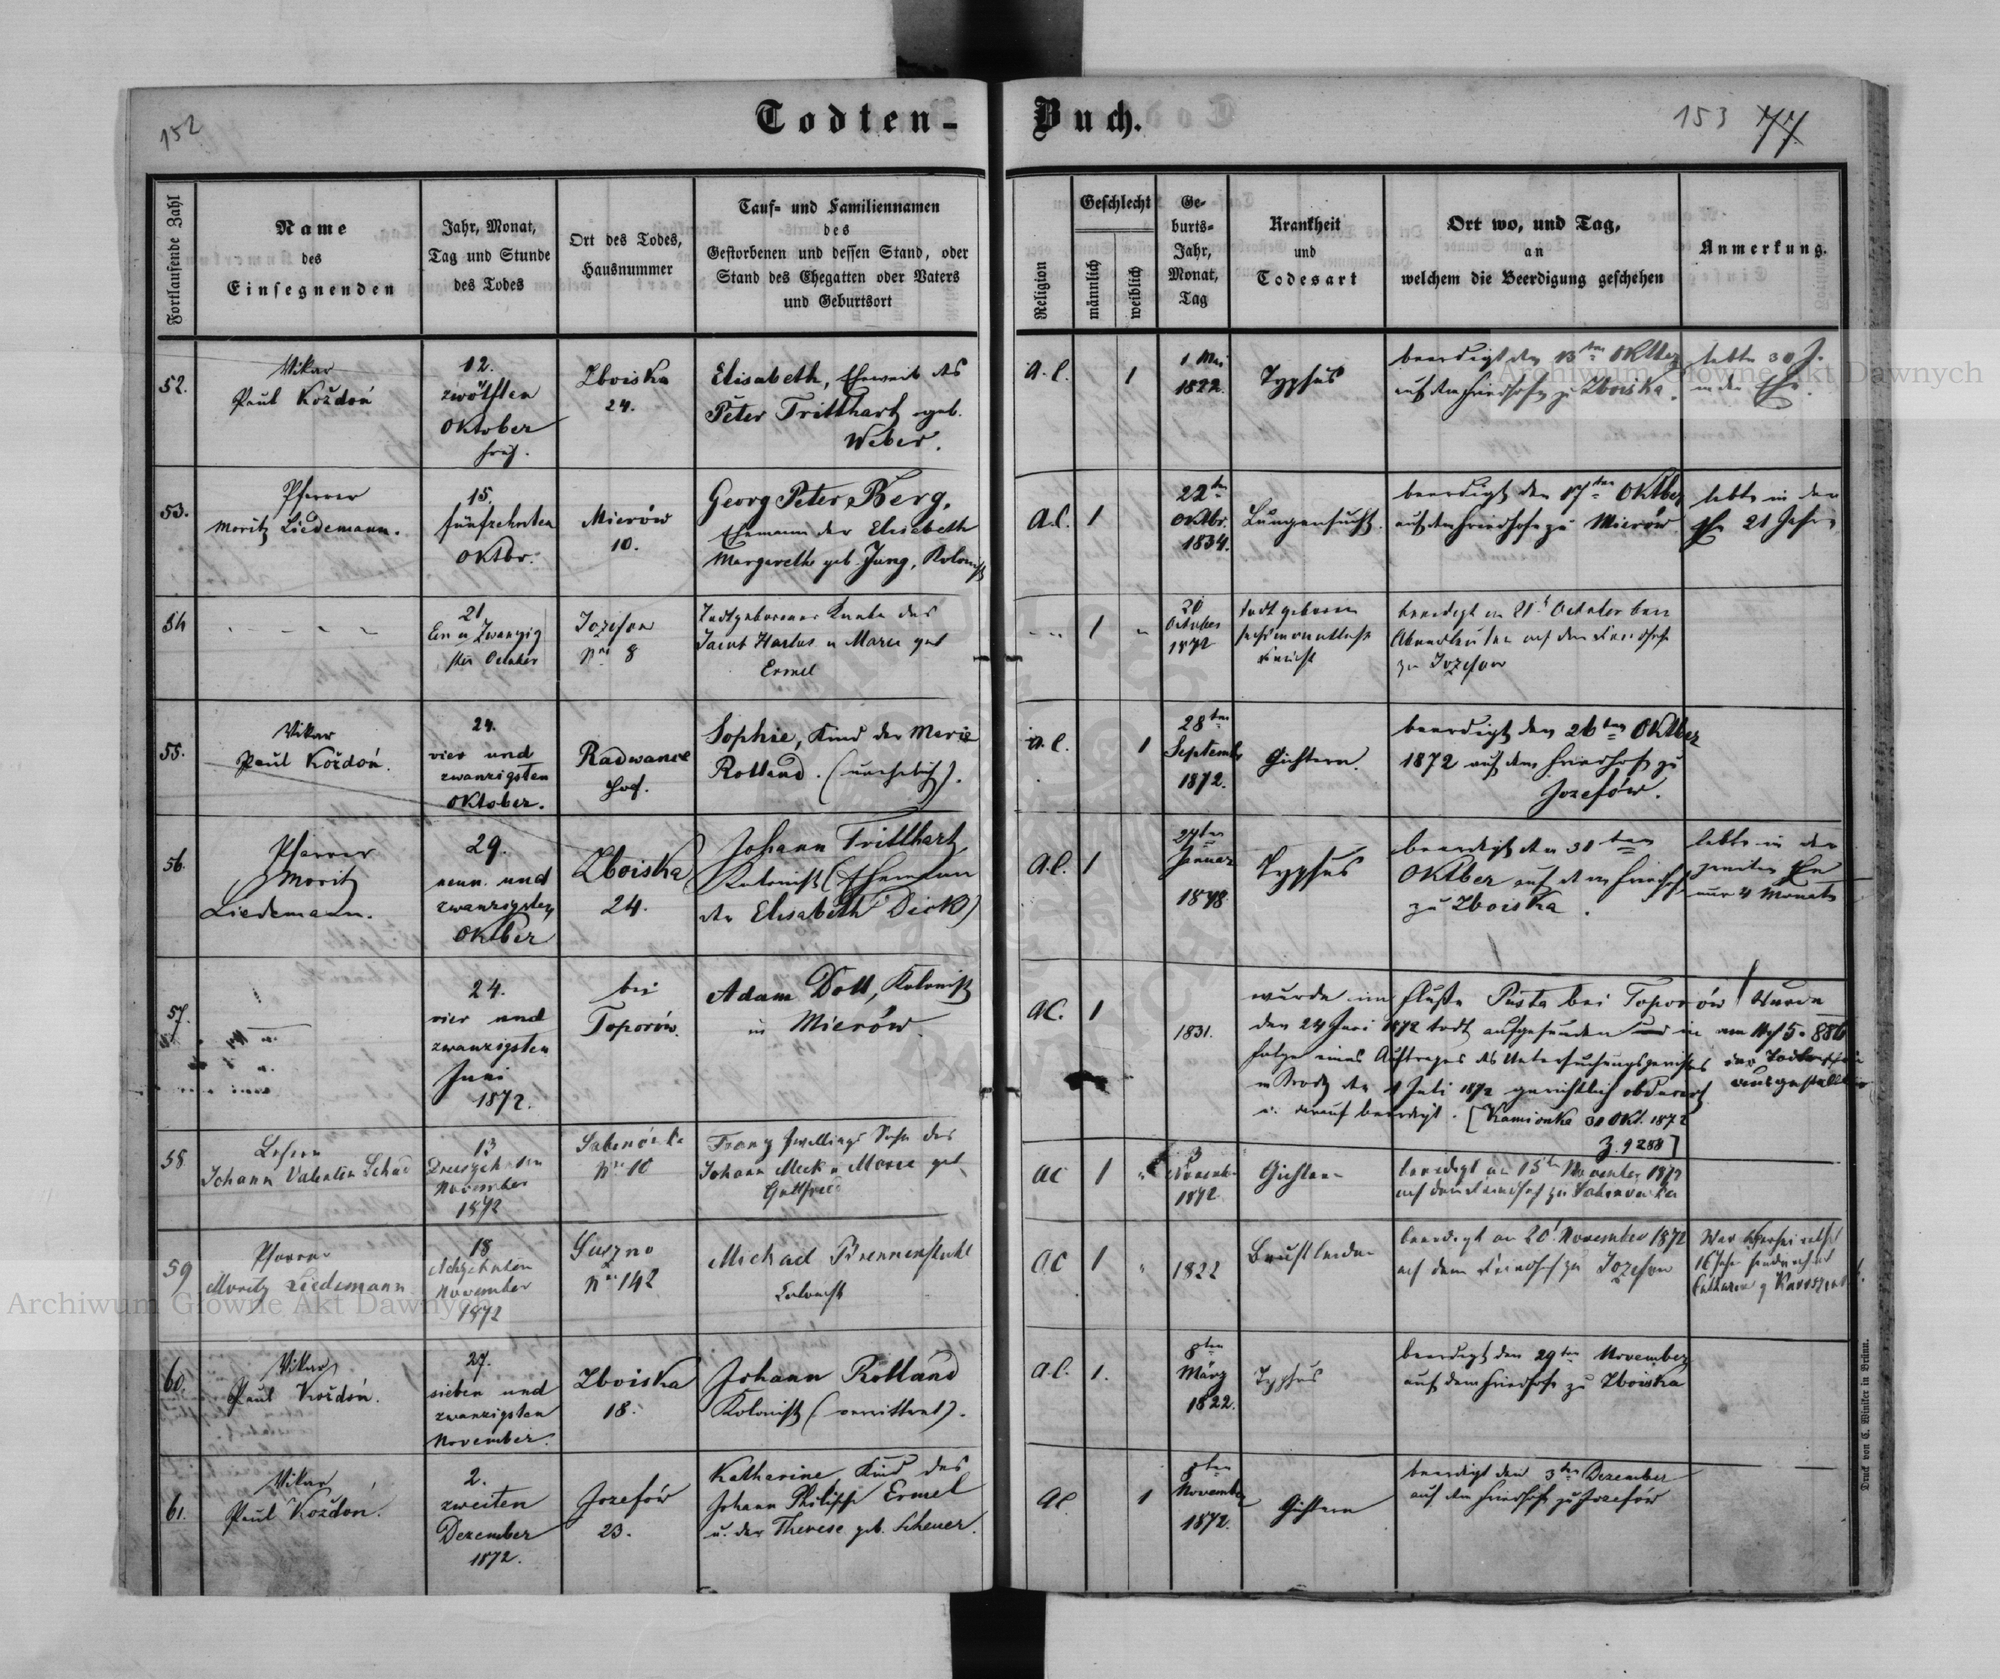 152
Todten-
Buch.
153 77
Fortlaufende Zahl
Name
des
Einsegnenden
Jahr, Monat,
Tag und Stunde
des Todes
Ort des Todes,
Hausnummer
Tauf- und Familiennamen
des
Gestorbenen und dessen Stand, oder
Stand des Ehegatten oder Vaters
und Geburtsort
Religion
Geschlecht
männlich
weiblich
Ge-
burts-
Jahr,
Monat,
Tag
Krankheit
und
Todesart
Ort wo, und Tag,
an
welchem die Beerdigung geschehen
Anmerkung.
52.
Vikar
Paul Koždoń
12.
zwölften
Oktober
früh.
Zboiska
24.
Elisabeth, Eheweib des
Peter Tritthart geb.
Weber.
A. C.
1
1 Mai
1822.
Typhus
beerdigt den 13ten Oktber
auf dem Friedhofe zu Zboiska.
lebte 30 J.
in der Ehe.
53.
Pfarrer
Moritz Liedemann.
15.
fünfzehnten
Oktbr.
Mierów
10.
Georg Peter Berg,
Ehemann der Elisabeth
Margarethe geb. Jung, Kolonist
A.C.
1
22ten
Oktbr.
1834.
Lungensucht.
beerdigt den 17ten Oktber
auf dem Friedhofe zu Mierów
lebte in der
Ehe 21 Jahre
54
21
Ein u Zwanzig
ster October
Jozefow
Nro 8
Todtgeborener Knabe des
Jacob Harlos u Marie geb
Ermel
1
20
October
1872
todt geborene
sechsmonatliche
Frucht
beerdigt am 21t October bei
auf dem Friedhofe
zu Jozefow
55.
Vikar
Paul Koždoń.
24.
vier und
zwanzigsten
Oktober.
Radwance
Hof.
Sophie, Kind der Marie
Rolland. (unehelich).
A. C.
1
28ten
September
1872.
Gichtern.
beerdigt den 26ten Oktber
1872 auf dem Friedhofe zu
Jozefów.
56.
Pfarrer
Moritz
Liedemann.
29.
neun und
zwanzigsten
Oktber
Zboiska
24.
Johann Tritthart,
Kolonist (Ehemann
der Elisabeth Dick)
A.C.
1
27ten
Januar
1848
Typhus
beerdigt den 31ten
Oktber auf dem Friedhofe
zu Zboiska.
lebte in der
zweiten Ehe
nur 4 Monate
57.
24.
vier und
zwanzigsten
Juni
1872.
bei
Toporów.
Adam Doll, Kolonist
in Mierów.
AC.
1
1831.
wurde im Fluße Pusta bei Toporów
den 24 Juni 1872 todt aufgefunden und in
Folge eines Auftrages des Untersuchungsgerichtes
in Brody den 1 Juli 1872 gerichtlich obducirt
u. darauf beerdigt. [Kamionka 30 Okt. 1872
Z. 9288]
Wurde
der Todtenschein
ausgestellt
58
Lehrer
Johann Valentin Schad
13
Dreizehnten
November
1872
Sabinówka
Nro 10
Franz Zwillings Sohn des
Johann Meck u Marie geb
Gottfried
AC
1
3
November
1872
Gichtern
beerdigt am 15ten November 1872
auf dem Friedhof zu Sabinówka
59
Pfarrer
Moritz Liedemann
18
Achzehnten
November
1872
Suszno
Nro 142
Michael Brennenstuhl
Colonist
AC
1
1822
Brustleiden
beerdigt am 20t November 1872
auf dem Friedhof zu Jozefow
War verheirathet
16 Jahr
60.
Vikar
Paul Koždoń.
27.
sieben und
zwanzigsten
November.
Zboiska
18.
Johann Rolland
Kolonist (verwittwet).
A. C.
1.
8ten
März
1822.
Typhus
beerdigt den 29ten November
auf dem Friedhofe zu Zboiska
61.
Vikar
Paul Koždoń.
2.
zweiten
Dezember
1872.
Jozefów
23.
Katharine, Kind des
Johann Philipp Ermel
u. der Therese geb. Scheuer.
AC.
1
8ten
November
1872.
Gichtern
beerdigt den 3ten Dezember
auf dem Friedhofe zu Jozefów
Druck von C. Winiker in Brünn.
Archiwum Główne Akt Dawnych
Archiwum Główne Akt Dawnych